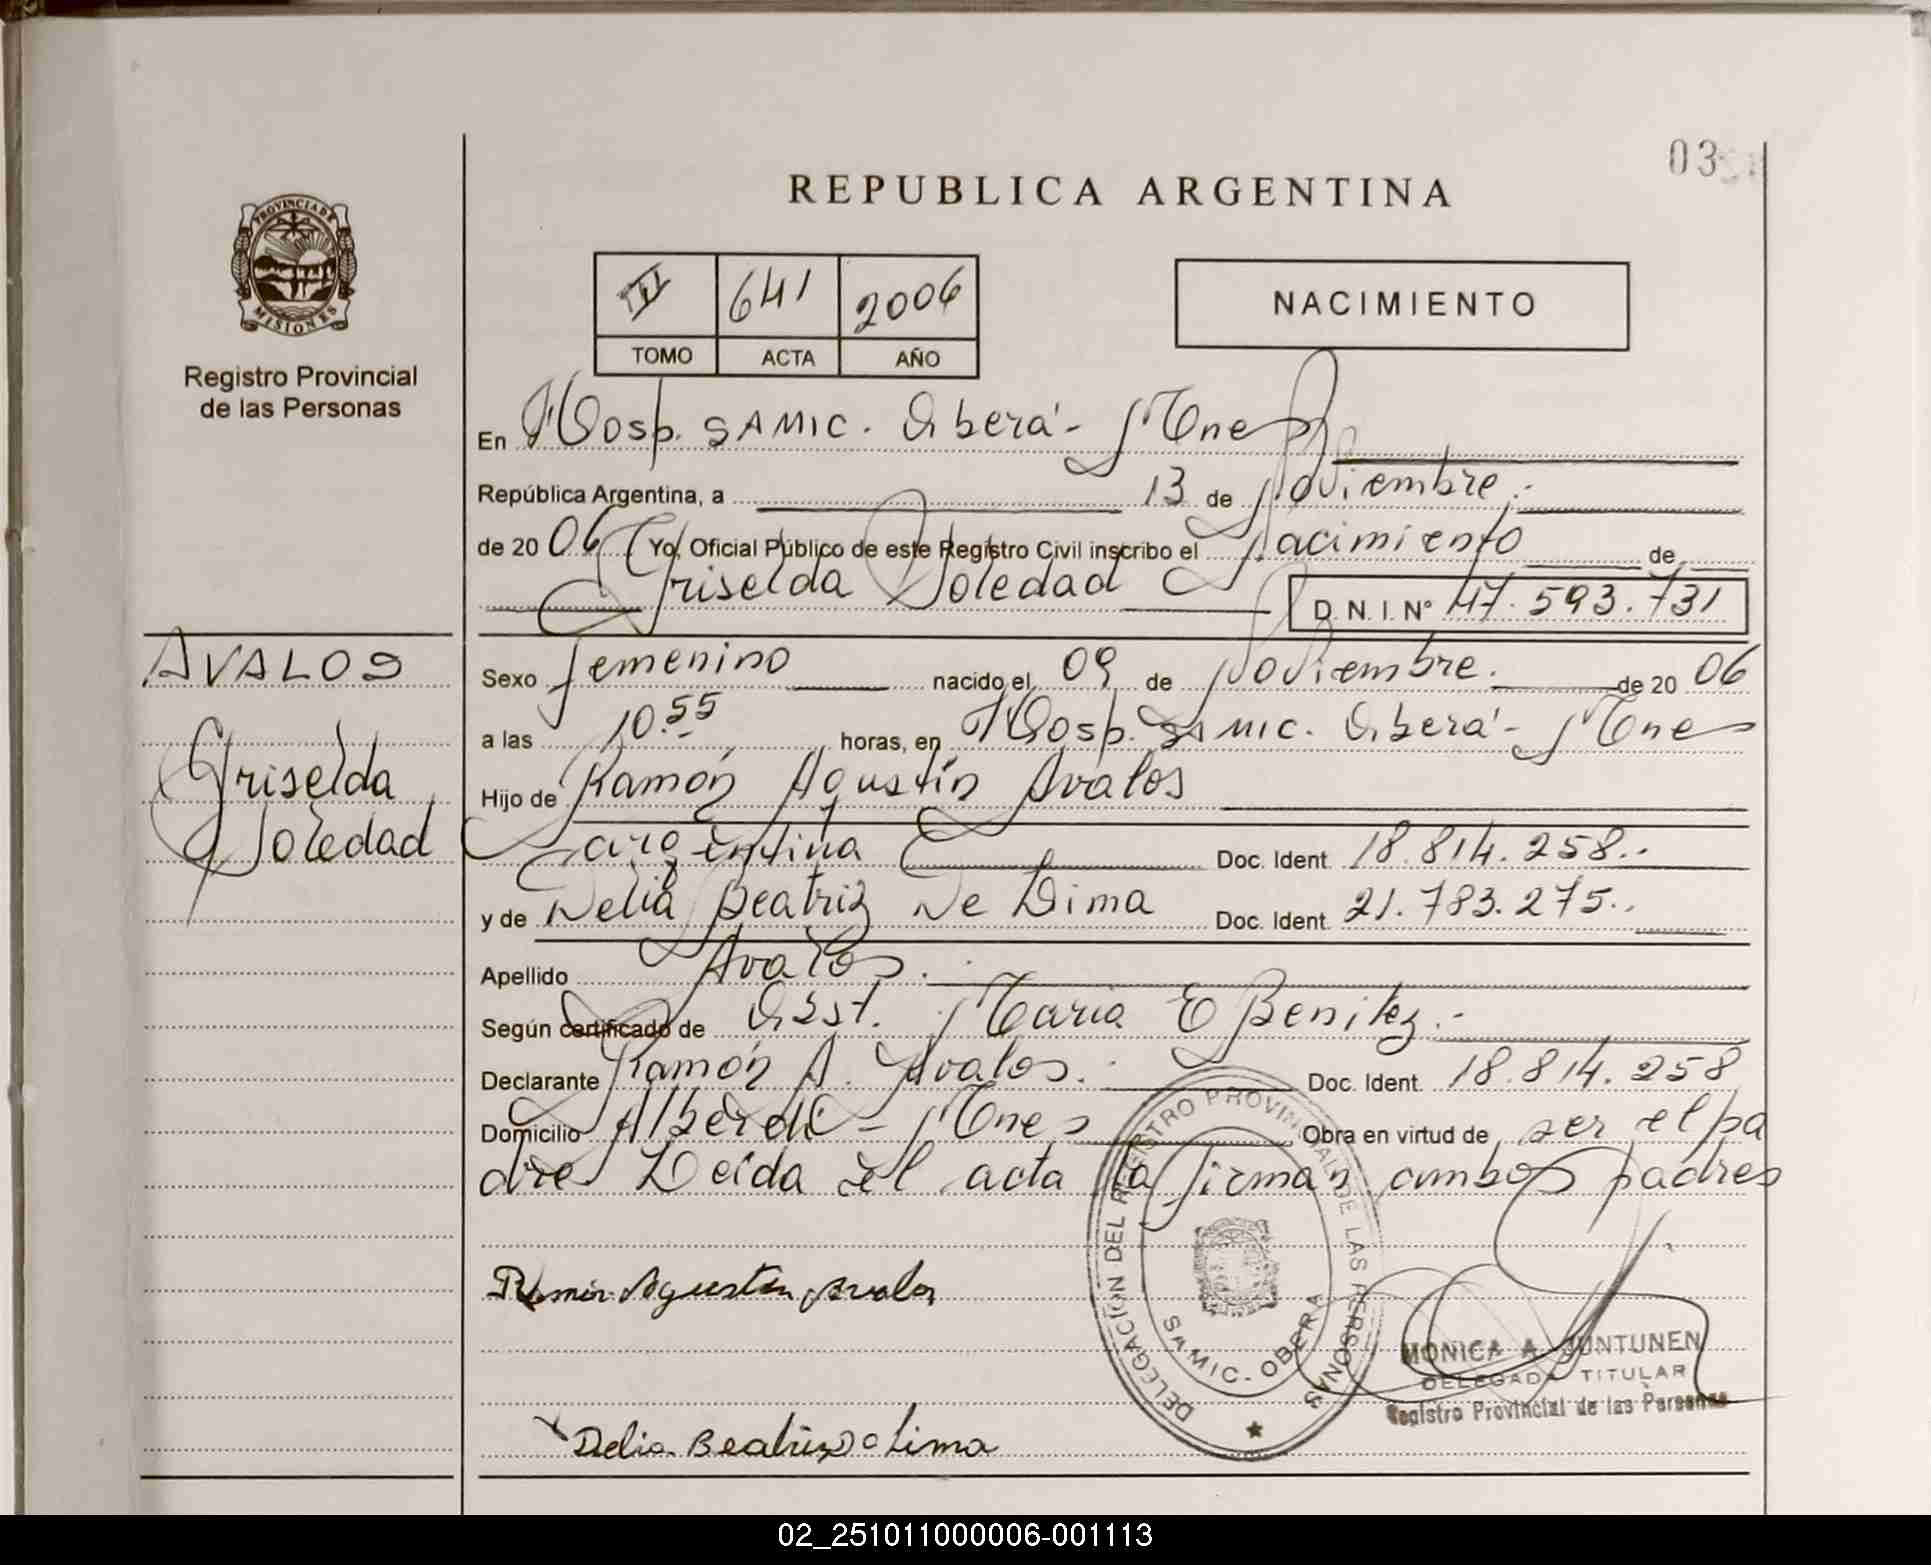 REPUBLICA ARGENTINA
03
PROVINCIA DE
MISIONES
Registro Provincial
de las Personas
641 2006
TOMO ACTA AÑO
NACIMIENTO
En Hosp. SAMIC. Oberá - Mnes
República Argentina, a 13 de Noviembre.-
de 20 06 Yo, Oficial Público de este Registro Civil inscribo el Nacimiento de
Griselda Soledad D.N.I. N° 47.593.731
AVALOS
Griselda
Soledad
Sexo femenino nacido el 09 de Noviembre. de 20 06
a las 10.55 horas, en Hosp. SAMIC. Oberá - Mnes
Hijo de Ramón Agustín Avalos
argentina Doc. Ident. 18.814.258.-
y de Delia Beatriz De Lima Doc. Ident. 21.783.275.
Apellido Avalos.
Según certificado de Obst. Maria E Benitez.-
Declarante Ramón A. Avalos. Doc. Ident. 18.814.258
Domicilio Alberdi - Mnes Obra en virtud de ser el pa
dre Leída el acta la firman ambos padres
Ramón Agustín Avalos
Delia Beatriz De Lima
DELEGACIÓN DEL REGISTRO PROVINCIAL DE LAS PERSONAS
SAMIC. OBERA
MONICA A. JUNTUNEN
DELEGADA TITULAR
Registro Provincial de las Personas
02_251011000006-001113